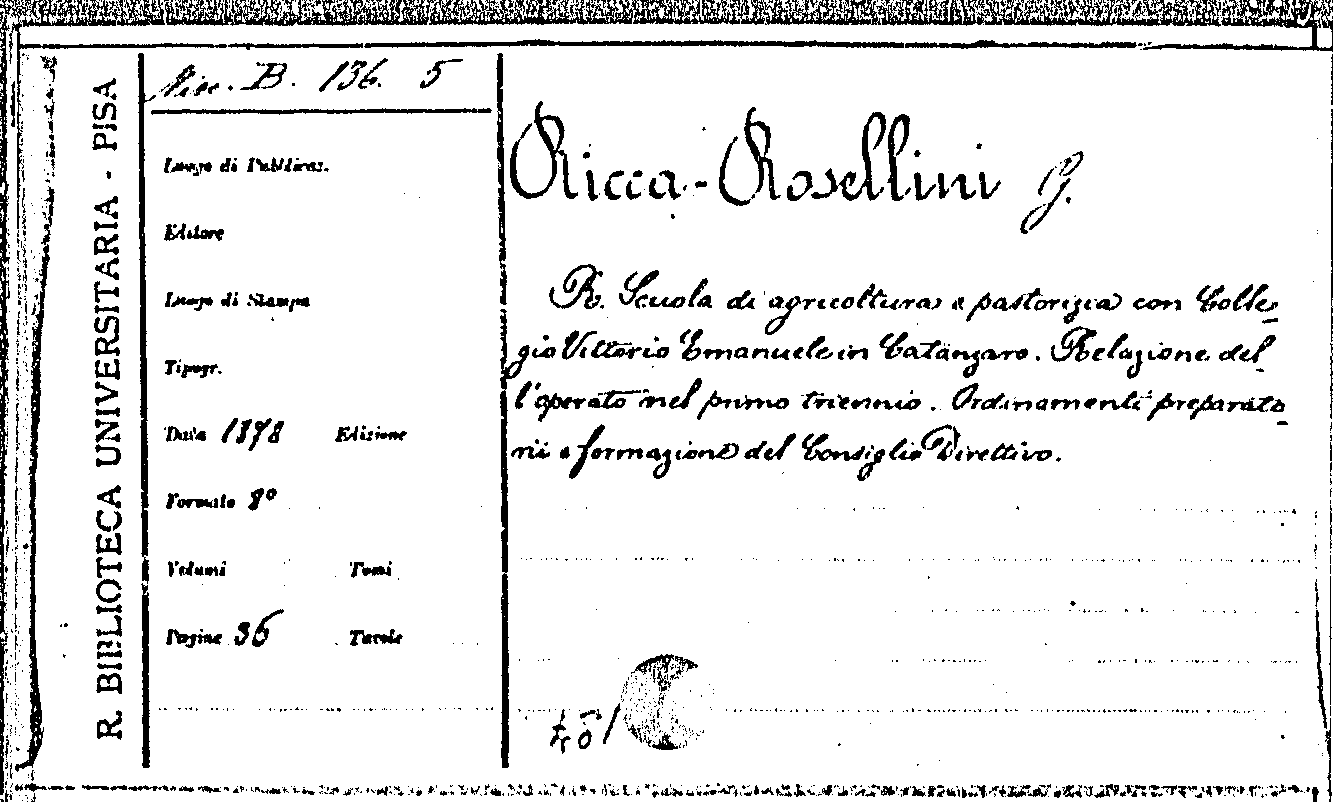 R. BIBLIOTECA UNIVERSITARIA - PISA
Misc. B. 136. 5
Luogo di Pubblicaz.
Editore
Luogo di Stampa
Tipogr.
Data 1878 Edizione
Formato 8°
Volumi Tomi
Pagine 36 Tavole
Ricca-Rosellini G.
R. Scuola di agricoltura e pastorizia con Colle-
gio Vittorio Emanuele in Catanzaro. Relazione del-
l'operato nel primo triennio. Ordinamenti preparato-
rii e formazione del Consiglio Direttivo.